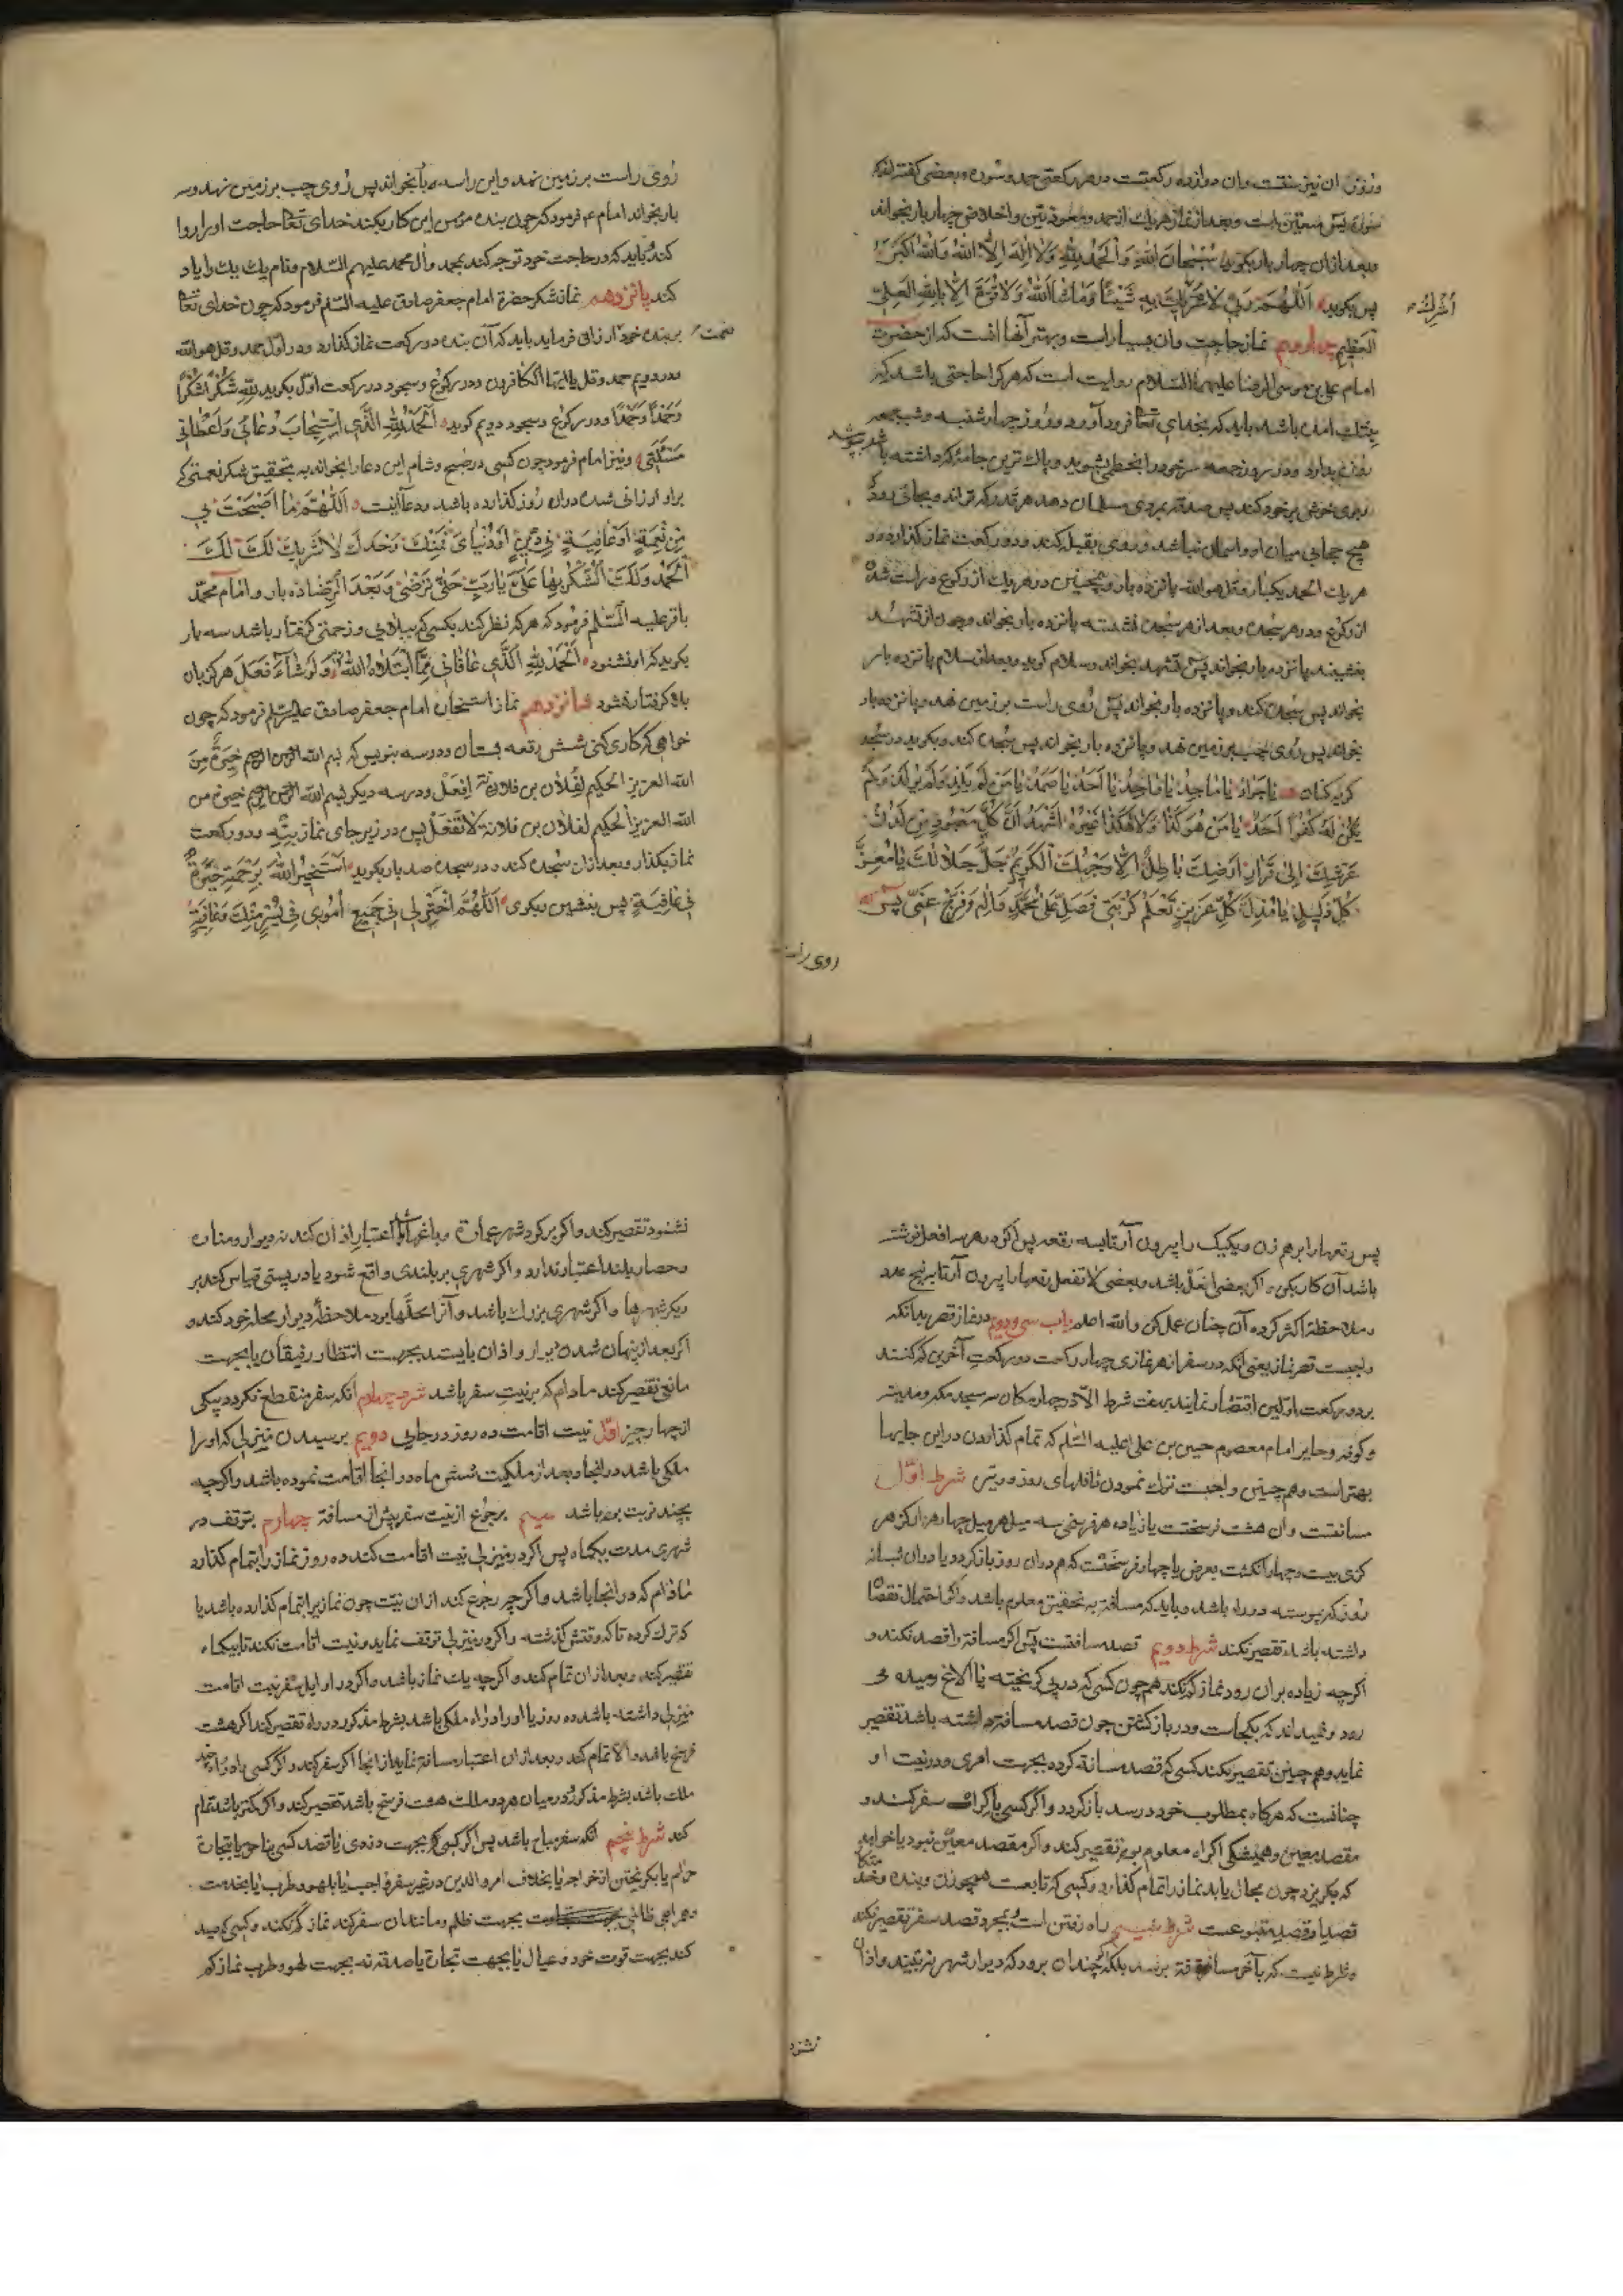 وروز آن نیز سنتست وآن دوازده رکعتست در هر رکعتی حمد وسوره وبعضی گفته‌اند که
سورۀ یس متعین است وبعد از نماز هر یک از حمد ومعوذتین واخلاص چهار بار بخواند
وبعد از آن چهار بار بگوید سُبْحانَ اللهِ وَالْحَمْدُ لِلّهِ وَلا اِلهَ اِلاَّ اللهُ وَاللهُ اَکْبَرُ
پس بگوید اَللّهُمَّ رَبّی لا بِهِ شَیْئًا وَماشاءَ اللهُ وَلا قُوَّةَ اِلاّ بِاللهِ الْعَلِیِّ
اُشْرِكُ
الْعَظیمِ چهاردهم نماز حاجت وآن بسیار است وبهترین آنها آنست که از حضرت
امام علی بن موسی الرضا علیهما السلام روایت است که هرکرا حاجتی باشد که
باید که بخدای تعا فرود آورد وروز چهارشنبه وپنجشنبه وجمعه
روزه بدارد ودر روز جمعه سر خود را بخطمی بشوید وپاک‌ترین جامۀ که داشته باشد بپوشد
وبوی خوش بر خود کند پس صدقه بروی مسلمان دهد هر قدر که تواند وبجائی رود که
هیچ حجابی میان او وآسمان نباشد وروی بقبله کند ودو رکعت نماز گذارد ودر
هر یک الحمد یکبار وقل هو الله پانزده بار وهمچنین در هر یک از رکوع وراست شدن
از رکوع ودر هر سجده وبعد از هر سجده نشسته پانزده بار بخواند وچون از تشهد
بنشیند پانزده بار بخواند پس تشهد بخواند وسلام گوید وبعد از سلام پانزده بار
بخواند پس سجده کند وپانزده بار بخواند پس روی راست بر زمین نهد وپانزده بار
بخواند پس روی چپ بر زمین نهد وپانزده بار بخواند پس سجده کند وبگوید در سجده
گریه‌کنان یا جَوادُ یا ماجِدُ یا واجِدُ یا اَحَدُ یا صَمَدُ یا مَنْ لَمْ یَلِدْ وَلَمْ یُولَدْ وَلَمْ
یَکُنْ لَهُ کُفُوًا اَحَدٌ یا مَنْ هُوَ کَذا وَلا هکَذا غَیْرُهُ اَشْهَدُ اَنَّ کُلَّ مَعْبُودٍ مِنْ لَدُنْ
عَرْشِكَ اِلی قَرارِ اَرْضِكَ باطِلٌ اِلاّ وَجْهُكَ الْکَریمُ جَلَّ جَلالُكَ یا مُعِزَّ
کُلِّ ذَلیلٍ یا مُذِلَّ کُلِّ عَزیزٍ تَعْلَمُ کُرْبَتی فَصَلِّ عَلی مُحَمَّدٍ وَآلِهِ وَفَرِّجْ عَنّی پس
روی راست
روی راست بر زمین نهد واین را سه بار بخواند پس روی چپ بر زمین نهد وسه
بار بخواند امام ع فرمود که چون بنده مؤمن این کار بکند خدای تعا حاجت او را روا
کند وباید که در حاجت خود توجه کند بمحمد وآل محمد علیهم السلام ونام یک یک را یاد
کند پانزدهم نماز شکر حضرة امام جعفر صادق علیه السلم فرمود که چون خدای تعا
نعمت
ببنده خود ارزانی فرماید باید که آن بنده دو رکعت نماز گذارد ودر اول حمد وقل هو الله
ودر دویم حمد وقل یا ایها الکافرون ودر رکوع وسجود در رکعت اول بگوید لِلّهِ شُکْرًا شُکْرًا
وَحَمْدًا وَحَمْدًا ودر رکوع وسجود دویم گوید اَلْحَمْدُ لِلّهِ الَّذی اسْتَجابَ دُعائی وَاَعْطانی
مَسْئَلَتی ونیز امام فرمود چون کسی در صبح وشام این دعا را بخواند به تحقیق شکر نعمتی که
بر او ارزانی شده در آن روز گذارده باشد ودعا اینست اَللّهُمَّ ما اَصْبَحَتْ بی
مِنْ نِعْمَةٍ اَوْ عافِیَةٍ فی دینٍ اَوْ دُنْیای فَمِنْكَ وَحْدَكَ لا شَریكَ لَكَ لَكَ
الْحَمْدُ وَلَكَ الشُّکْرُ بِها عَلَیَّ یا رَبِّ حَتّی تَرْضی وَبَعْدَ الرِّضا ده بار وامام محمد
باقر علیه السلم فرمود که هرکه نظر کند بکسی که ببلائی وزحمتی گرفتار باشد سه بار
بگوید که او نشنود اَلْحَمْدُ لِلّهِ الَّذی عافانی مِمَّا ابْتَلاهُ اللهُ وَلَوْ شاءَ فَعَلَ هرگز بآن
بلا گرفتار نشود شانزدهم نماز استخاره امام جعفر صادق علیه السلم فرمود که چون
خواهی که کاری کنی شش رقعه بستان ودر سه بنویس که بسم الله الرحمن الرحیم خِیَرَةٌ مِنَ
الله العزیز الحکیم لفلان بن فلانة اِفعَل ودر سه دیگر بسم الله الرحمن الرحیم خیرة من
الله العزیز الحکیم لفلان بن فلانة لا تَفعَل پس در زیر جای نماز بنه ودو رکعت
نماز بگذار وبعد از آن سجده کند ودر سجده صد بار بگوید اَسْتَخیرُ اللهَ بِرَحْمَتِهِ خِیَرَةً
فی عافِیَةٍ پس بنشین وبگوی اَللّهُمَّ اخْتَرْ لی فی جَمیعِ اُمُوری فی یُسْرٍ مِنْكَ وَعافِیَةٍ
پس رقعها را برهم زن ویکیک را بیرون آر تا سه رقعه پس اگر در هر سه افعل نوشته
باشد آن کار بکن واگر بعضی افعل باشد وبعضی لا تفعل رقعها را بیرون آر تا پنج عدد
وملاحظۀ اکثر کرده آن چنان عمل کن والله اعلم باب سی ودویم در نماز قصر بدانکه
واجبست قصر نماز یعنی آنکه در سفر از هر نمازی چهار رکعت دو رکعت آخرین کم کنند
بر دو رکعت اولین اقتصار نمایند بهفت شرط الا در چهار مکان مسجد مکه ومدینه
وکوفه وحایر امام معصوم حسین بن علی علیه السلم که تمام گذاردن در این جایها
بهتر است وهم چنین واجبست ترک نمودن نافلهای روز ووتیره شرط اول
مسافتست وآن هشت فرسخست یا زیاده هر فرسخی سه میل هر میل چهار هزار گز هر
گزی بیست وچهار انگشت بعرض یا چهار فرسخست که هم در آن روز بازگردد یا در آن شبانه
روز که پیوسته در راه باشد وباید که مسافة به تحقیق معلوم باشد واگر احتمال نقصان
داشته باشد تقصیر نکند شرط دویم قصد مسافتست پس اگر مسافة را قصد نکند و
اگرچه زیاده بر آن رود نماز کم نکند هم چون کسی که در پی گریخته یا الاغ رمیده می
رود ونمیداند که بکجاست ودر بازگشتن چون قصد مسافة داشته باشد تقصیر
نماید وهم چنین تقصیر نکند کسی که قصد مسافة کرده بجهت امری ودر نیت او
چنانست که هرگاه بمطلوب خود رسد بازگردد واگر کسی باکراه سفر کند و
مقصد معین وهمیشگی اکراه معلوم بود تقصیر کند واگر مقصد معین نبود یا خواهد
که بگریزد چون مجال یابد نماز را تمام گذارد وکسی که تابعست همچو زن وبنده
قصد او قصد متبوعست شرط سیم راه رفتن است بمجرد قصد سفر تقصیر نکند
وشرط نیست که بآخر مسافة برسد بلکه چندان برود که دیوار شهر نه‌بیند واذان
نشنود
نشنود تقصیر کند واگر بر گرد شهر عمارة وباغها باشد اعتبار اذان کند نه دیوار ومناره
وحصار بلند اعتبار ندارد واگر شهری بر بلندی واقع شود یا در پستی قیاس کند بر
دیگر شهرها واگر شهری بزرک باشد وآنرا محلها بود ملاحظۀ دیوار محله خود کند و
اگر بعد از پنهان شدن دیوار واذان بایستد بجهت انتظار رفیقان یا بجهت
مانع تقصیر کند مادام که بر نیت سفر باشد شرط چهارم آنکه سفر منقطع نگردد بیکی
از چهار چیز اول نیت اقامت ده روز در جایی دویم برسیدن منزلی که او را
ملکی باشد در آنجا وبعد از ملکیت شش ماه در آنجا اقامت نموده باشد واگرچه
بچند نوبت بوده باشد سیم برجوع از نیت سفر پیش از مسافة چهارم بتوقف در
شهری مدت یکماه پس اگر در منزلی نیت اقامت کند ده روز نماز را تمام گذارد
مادام که در آنجا باشد واگرچه رجوع کند از آن نیت چون نماز را تمام گذارده باشد یا
که ترک کرده تا که وقتش گذشته واگر در منزلی توقف نماید ونیت اقامت نکند تا یکماه
تقصیر کند وبعد از آن تمام کند واگرچه یک نماز باشد واگر در اول سفر نیت اقامت
منزلی داشته باشد ده روز یا او را در راه ملکی باشد بشرط مذکور در راه تقصیر کند اگر هشت
فرسخ باشد والا تمام کند وبعد از آن اعتبار مسافة نماید از آنجا اگر سفر کند واگر کسی را در راه چند
ملک باشد بشرط مذکور در میان هر دو ملک هشت فرسخ باشد تقصیر کند واگر کمتر باشد تمام
کند شرط پنجم آنکه سفر مباح باشد پس اگر کسی که بجهت دزدی یا قصد کسی بناحق یا تجارة
حرام یا بگریختن از خواجه یا بخلاف امر والدین در غیر سفر واجب یا بلهو وطرب یا بخدمت
وهمراهی ظالمی بجهت ظلم ومانند آن سفر کند نماز کم نکند وکسی که صید
کند بجهت قوت خود وعیال یا بجهت تجارة یا صدقه نه بجهت لهو وطرب نماز کم